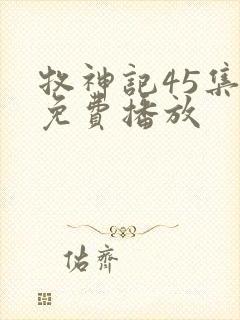 牧神記45集
免費播放
佑齊